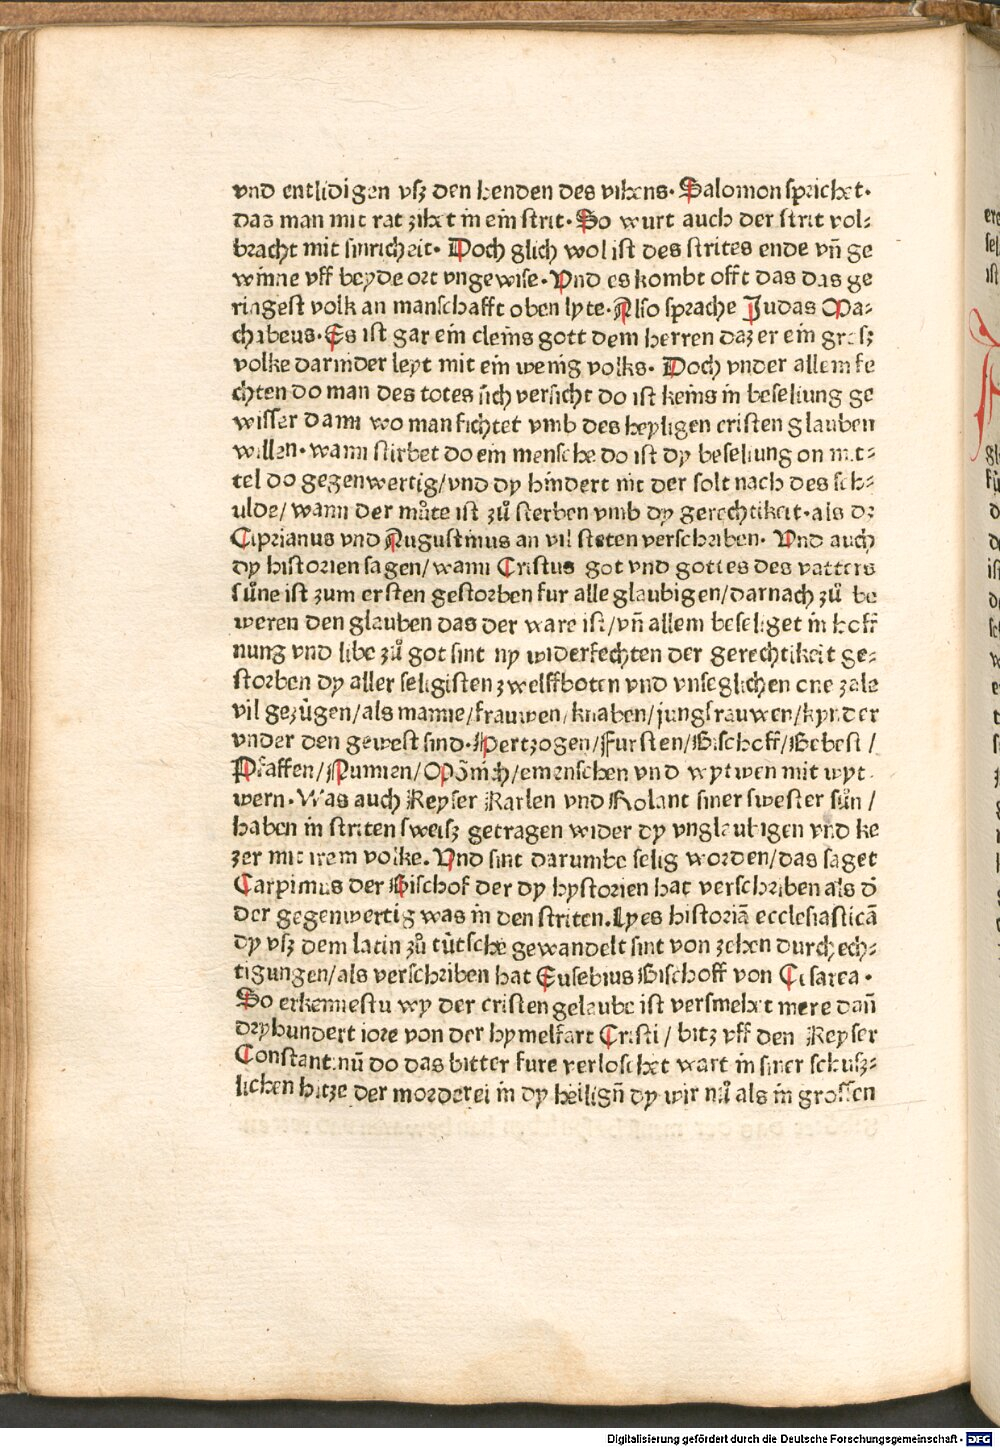 vnd entlidigen vsz den henden des vihens. Salomon sprichet.
das man mit rat zihet in ein strit. So wurt auch der strit vol⸗
bracht mit sinricheit. Doch glich wol ist des strites ende vn̄ ge
winne vff beyde ort vngewise. Vnd es kombt offt das das ge
ringest volk an manschafft oben lyte. Also sprache Judas Ma⸗
chibeus. Es ist gar ein cleins gott dem herren daz er ein grosz
volke darnider leyt mit ein wenig volks. Doch vnder allem fe
chten do man des totes sich versicht do ist keins in beseliung ge
wisser dann wo man fichtet vmb des heyligen cristen glauben
willen. wann stirbet do ein mensche do ist dy beseliung on mit⸗
tel do gegenwertig/vnd dy hindert nit der solt nach des sch⸗
ulde/wann der mu̇te ist zu̇ sterben vmb dy gerechtikeit. als dz
Ciprianus vnd Augustinus an vil steten verschriben. Vnd auch
dy historien sagen/wann Cristus got vnd gottes des vatters
su̇ne ist zum ersten gestorben fur alle glaubigen/darnach zu̇ be
weren den glauben das der ware ist/vn̄ allem beseliget in hoff
nung vnd libe zu̇ got sint ny widerfechten der gerechtikeit ge⸗
storben dy aller seligisten zwelffboten vnd vnseglichen one zale
vil gezu̇gen/als manne/frauwen/knaben/jungfrauwen/kynder
vnder den gewest sind. Hertzogen/Fursten/Bischoff/Bebest/
Pfaffen/Nunnen/Mȯnich/emenschen vnd wytwen mit wyt
wern. Was auch Keyser Karlen vnd Rolant siner swester su̇n/
haben in striten sweisz getragen wider dy vnglaubigen vnd ke
zer mit irem volke. Vnd sint darumbe selig worden/das saget
Carpinus der Bischof der dy hystorien hat verschriben als d̄
der gegenwertig was in den striten. Lyes historiā ecclesiasticā
dy vsz dem latin zu̇ tu̇tsche gewandelt sint von zehen durchech⸗
tigungen/als verschriben hat Eusebius Bischoff von Cisarea.
So erkennestu wy der cristen gelaube ist versmehet mere dan̄
dryhundert iore von der hymelfart Cristi/bitz vff den Keyser
Constantinū do das bitter fure verloschet wart in siner schusz⸗
lichen hitze der morderei in dy heilign̄ dy wir nu̇ als in grossen
Digitalisierung gefördert durch die Deutsche Forschungsgemeinschaft - DFG